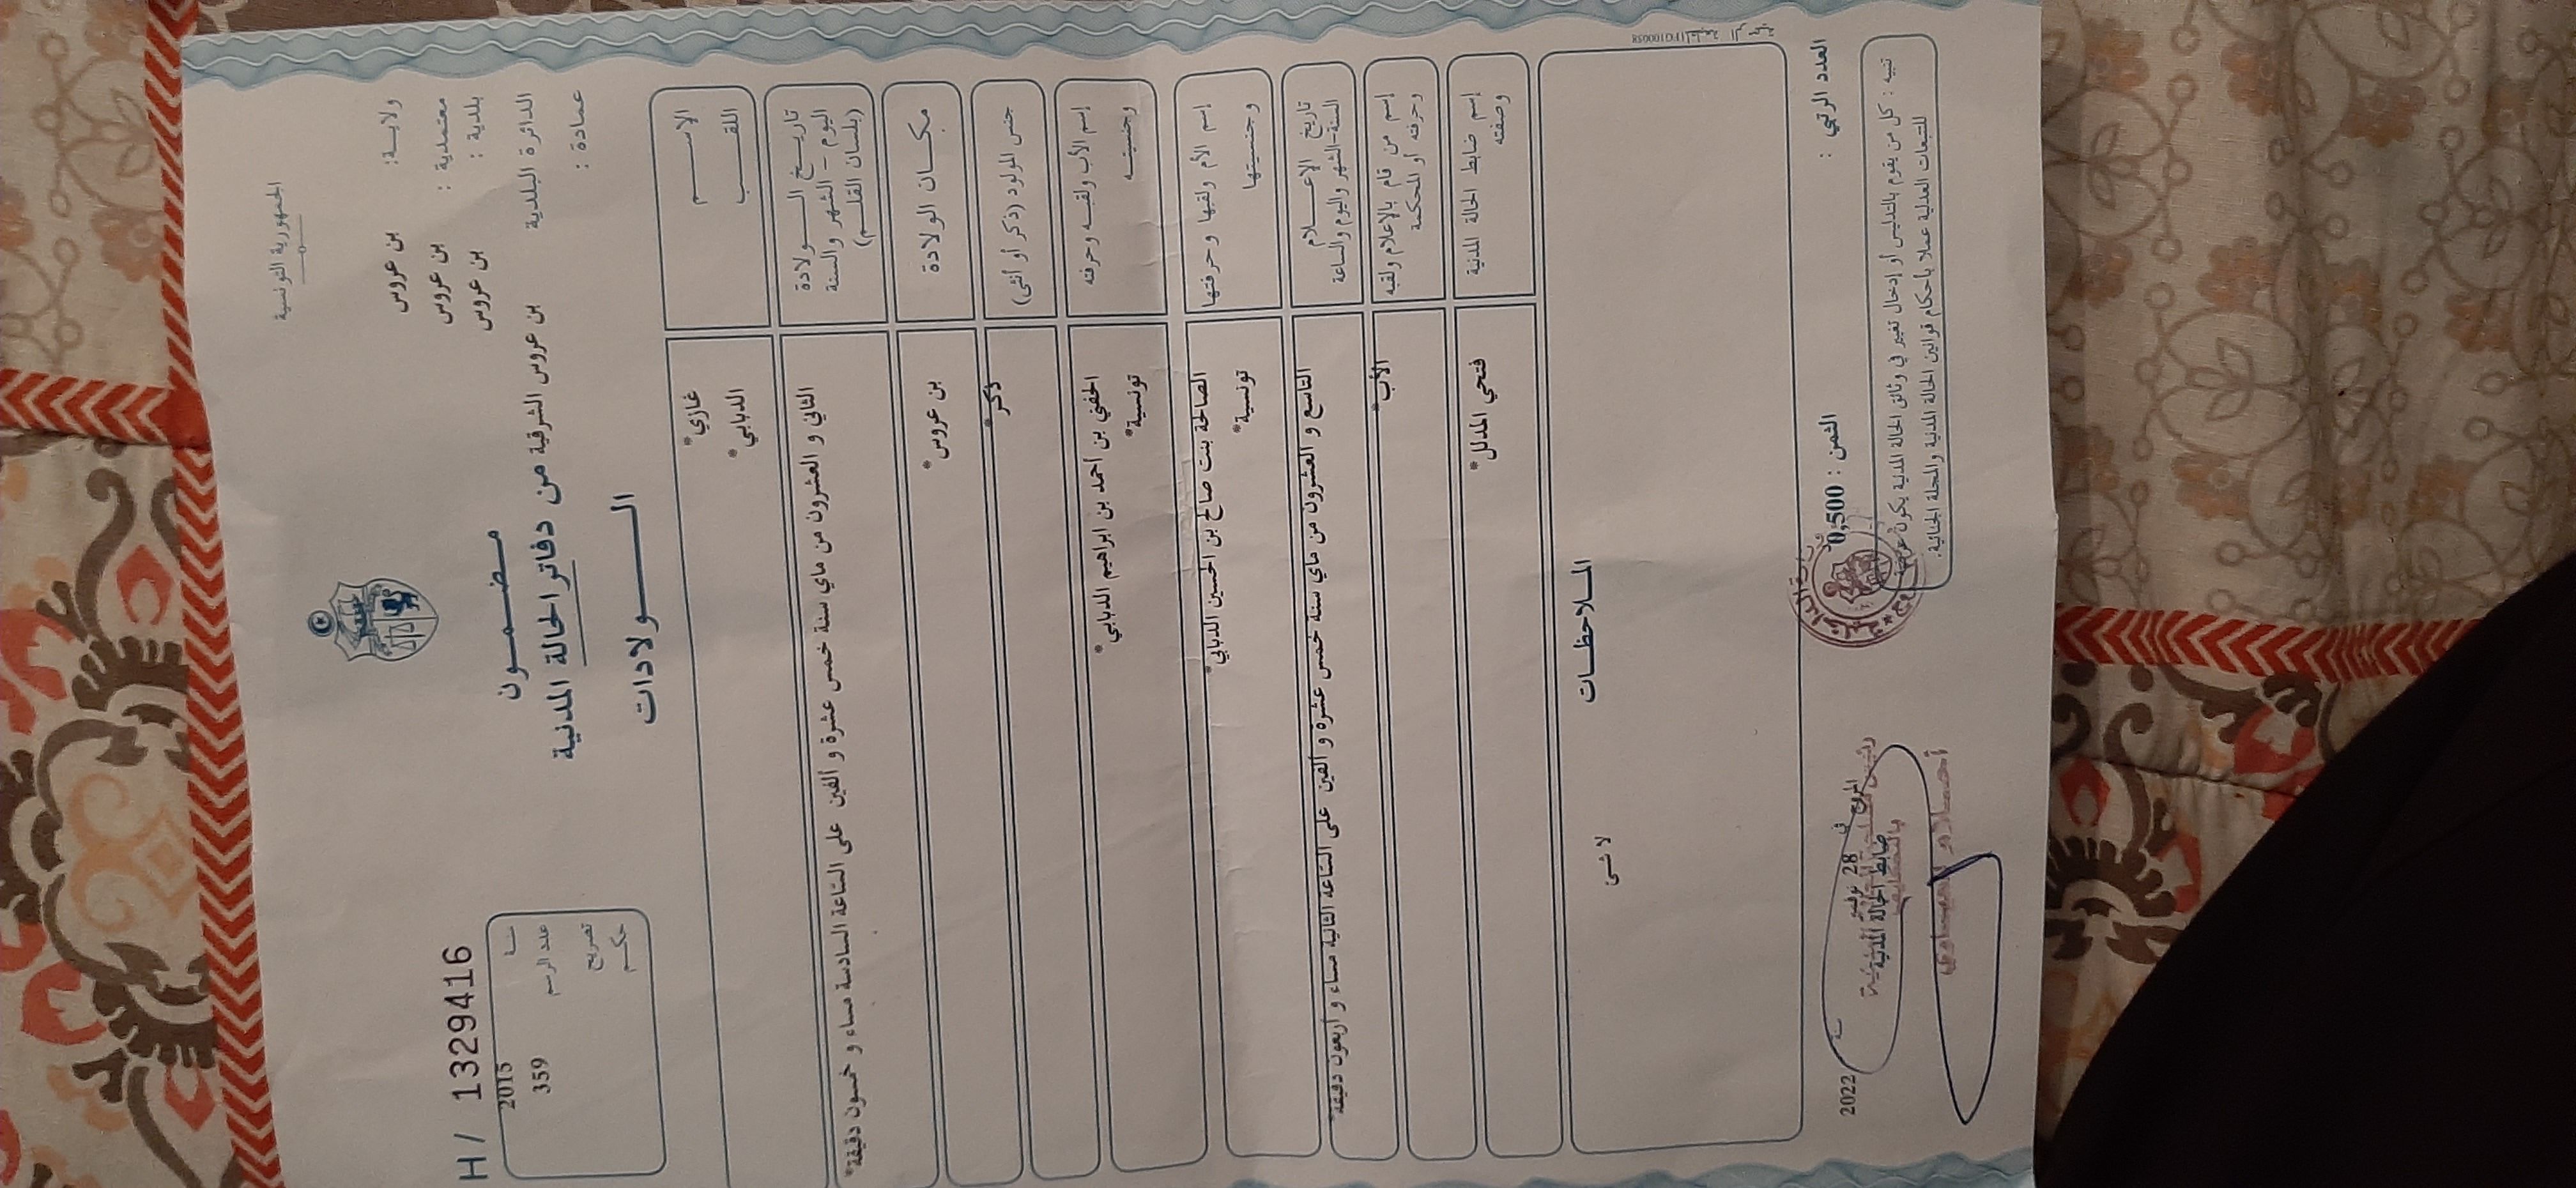 الجمهورية التونسية
ولاية: بن عروس
معتمدية : بن عروس
بلدية : بن عروس
الدائرة البلدية بن عروس الشرقية
عمادة :
H / 1329416
سنة 2015
عدد الرسم 359
تصريح
حكم
مضمون
من دفاتر الحالة المدنية
الولادات
الاسم غازي*
اللقب الدبابي*
تاريخ الولادة
اليوم - الشهر والسنة
(بلسان القلم)
الثاني و العشرون من ماي سنة خمس عشرة و الفين على الساعة السادسة مساء و خمسون دقيقة*
مكان الولادة بن عروس*
جنس المولود (ذكر أو أنثى) ذكر*
إسم الأب ولقبه وحرفته الحفني بن أحمد بن ابراهيم الدبابي*
وجنسيته تونسية*
إسم الأم ولقبها وحرفتها الصالحة بنت صالح بن الحسين الدبابي*
وجنسيتها تونسية*
تاريخ الإعلام
السنة-الشهر واليوم والساعة
التاسع و العشرون من ماي سنة خمس عشرة و ألفين على الساعة الثانية مساء و أربعون دقيقة*
إسم من قام بالاعلام ولقبه الأب*
وحرفته أو المحكمة
إسم ضابط الحالة المدنية فتحي المدلل*
وصفته
الملاحظات
لا شئ
العدد الرتبي :
الثمن : 0,500
المروج في 28 نوفمبر سنة 2022
ضابط الحالة المدنية
تنبيه : كل من يقوم بالتدليس أو إدخال تغيير في وثائق الحالة المدنية يكون عرضة
للتتبعات العدلية عملا بأحكام قوانين الحالة المدنية والمجلة الجنائية.